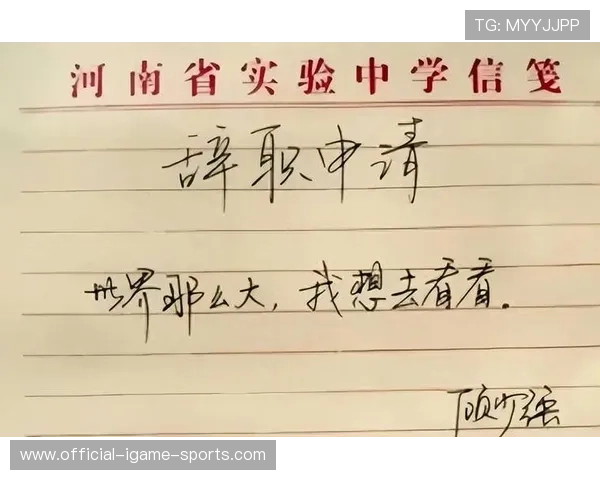 TG: MYYJJPP
河南省实验中学信笺
辞职申请
世界那么大，我想去看看。
顾少强
www.official-igame-sports.com